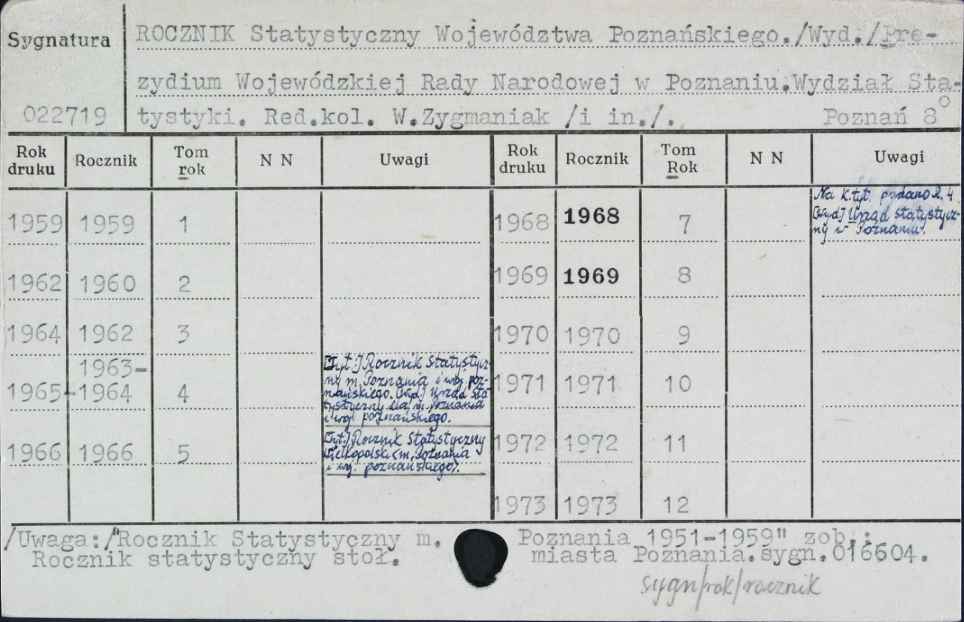 Sygnatura
022719
ROCZNIK Statystyczny Województwa Poznańskiego./Wyd./Pre-
zydium Wojewódzkiej Rady Narodowej w Poznaniu.Wydział Sta-
tystyki. Red.kol. W.Zygmaniak /i in./. Poznań 8°
Rok druku Rocznik Tom rok N N Uwagi Rok druku Rocznik Tom Rok N N Uwagi
1959 1959 1
1962 1960 2
1964 1962 3
1965- 1963-1964 4 [Tyt:] Rocznik Statystycz-
ny m. Poznania i woj. poz-
nańskiego. [Wyd] Urząd Sta
tystyczny dla m. poznania
i woj. poznańskiego.
1966 1966 5 [Tyt:] Rocznik Statystyczny
Wielkopolski (m. poznania
i woj. poznańskiego).
1968 1968 7 Na k.tyt. podano R. 4.
[Wyd] Urząd statystycz-
ny w Poznaniu.
1969 1969 8
1970 1970 9
1971 1971 10
1972 1972 11
1973 1973 12
/Uwaga:/"Rocznik Statystyczny m. Poznania 1951-1959" zob.:
Rocznik statystyczny stoł. miasta Poznania.sygn.016604.
sygn/rok/rocznik